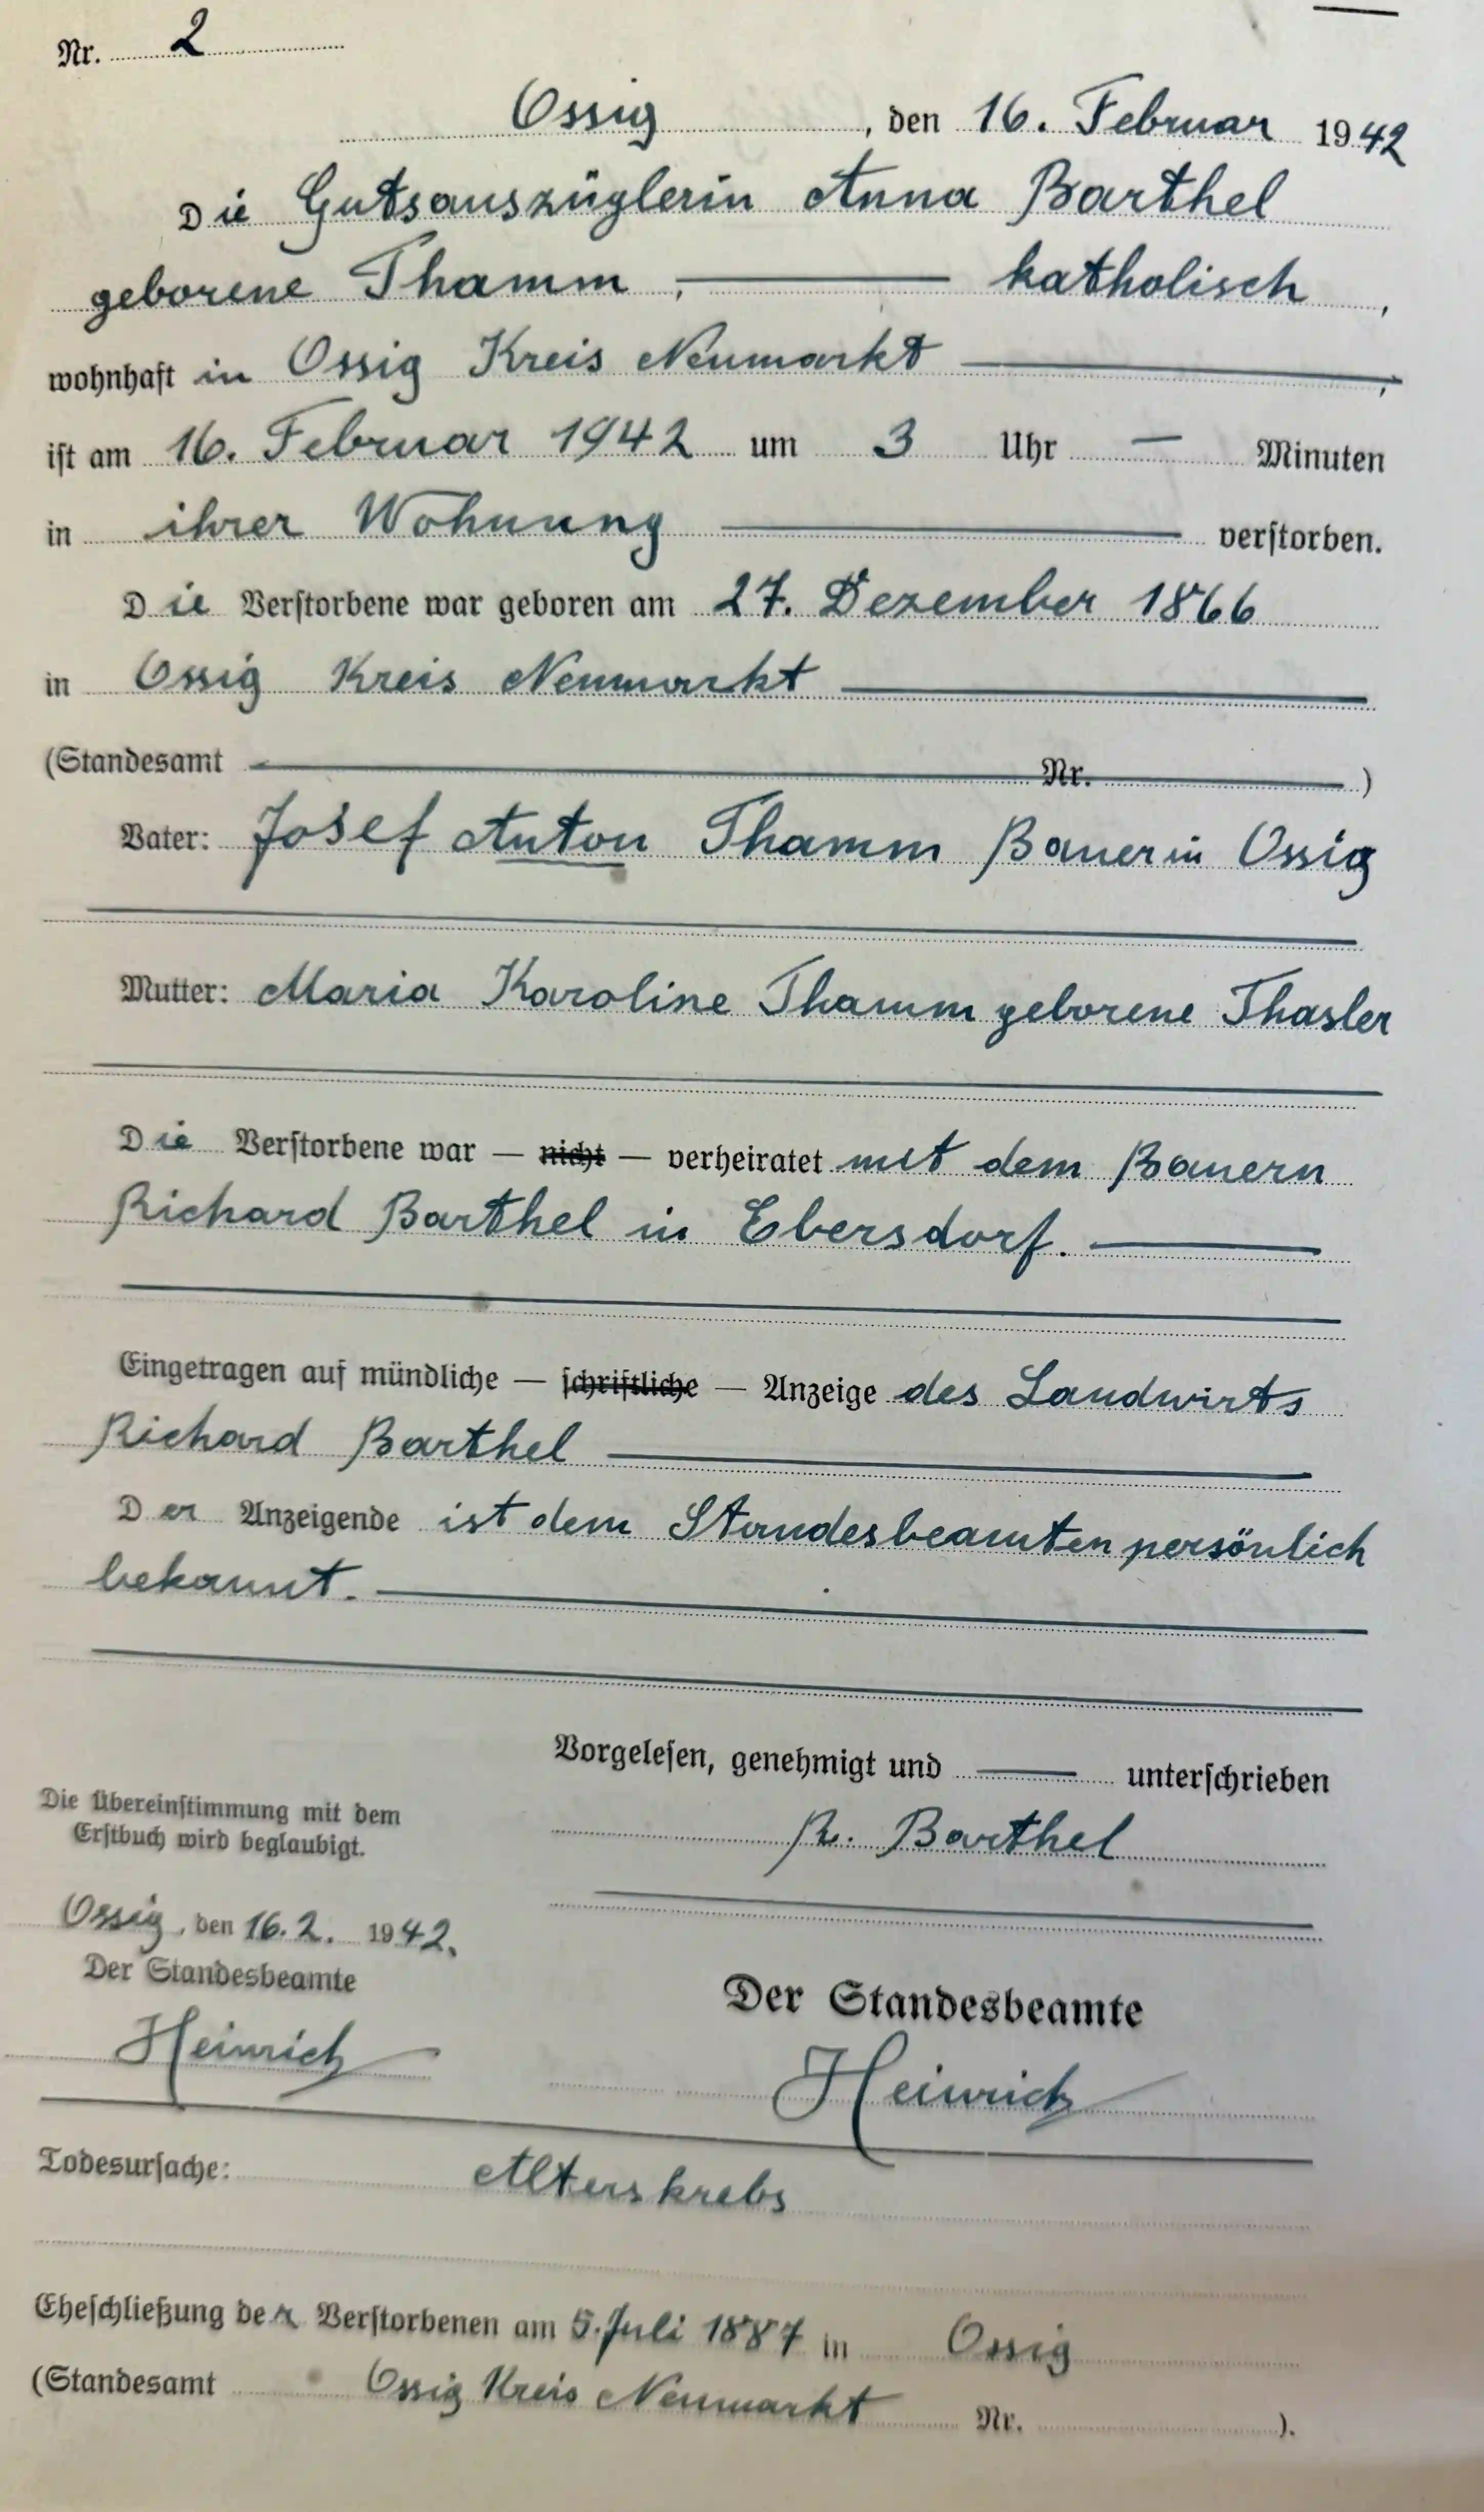 Nr. 2
Ossig, den 16. Februar 1942
Die Gutsauszüglerin Anna Barthel
geborene Thamm, katholisch,
wohnhaft in Ossig Kreis Neumarkt,
ist am 16. Februar 1942 um 3 Uhr — Minuten
in ihrer Wohnung verstorben.
Die Verstorbene war geboren am 27. Dezember 1866
in Ossig Kreis Neumarkt
(Standesamt Nr. )
Vater: Josef Anton Thamm Bauer in Ossig
Mutter: Maria Karoline Thamm geborene Thasler
Die Verstorbene war — nicht — verheiratet mit dem Bauern
Richard Barthel in Ebersdorf.
Eingetragen auf mündliche — schriftliche — Anzeige des Landwirts
Richard Barthel
Der Anzeigende ist dem Standesbeamten persönlich
bekannt.
Vorgelesen, genehmigt und — unterschrieben
R. Barthel
Die Übereinstimmung mit dem
Erstbuch wird beglaubigt.
Ossig, den 16.2. 1942.
Der Standesbeamte
Heinrich
Der Standesbeamte
Heinrich
Todesursache: Alterskrebs
Eheschließung der Verstorbenen am 5. Juli 1887 in Ossig
(Standesamt Ossig Kreis Neumarkt Nr. ).